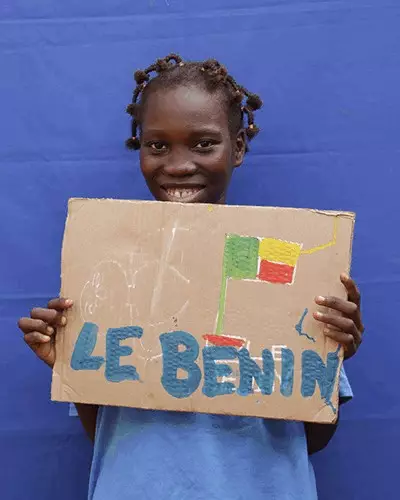 LE BENIN